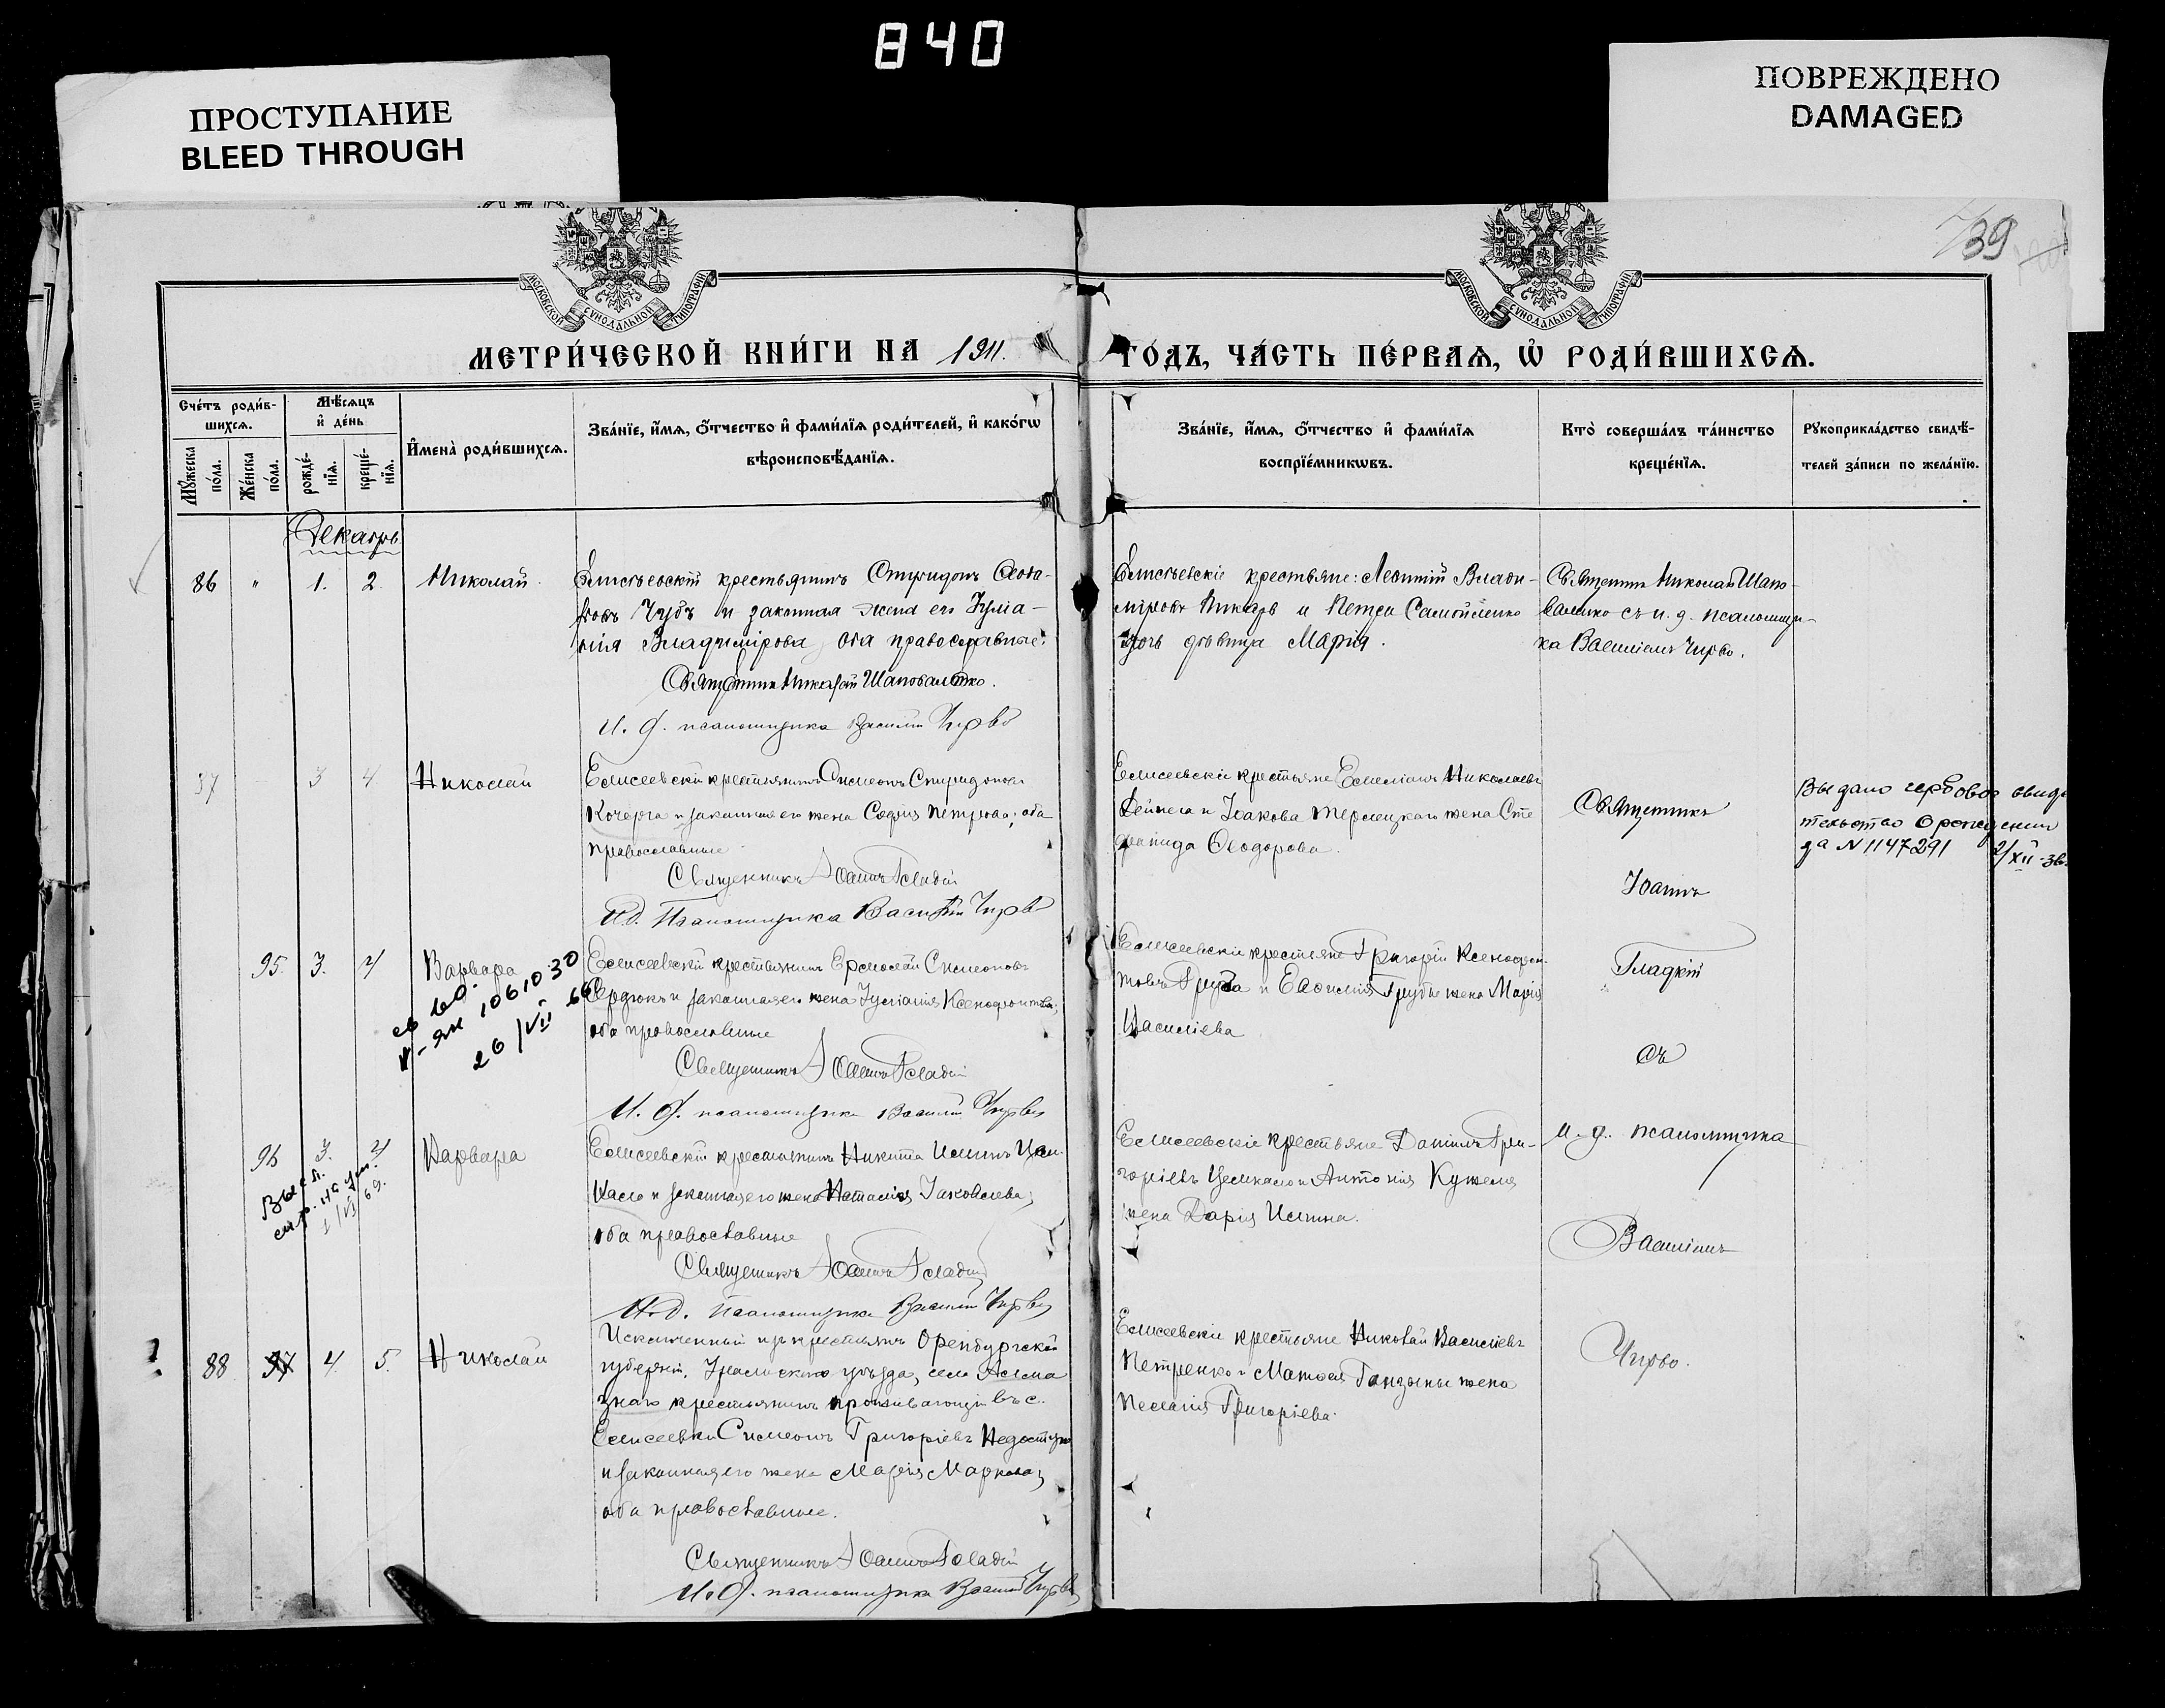 840
ПРОСТУПАНИЕ
BLEED THROUGH
ПОВРЕЖДЕНО
DAMAGED
739
МОСКОВСКОЙ СУНОДАЛЬНОЙ ТИПОГРАФІИ
МОСКОВСКОЙ СУНОДАЛЬНОЙ ТИПОГРАФІИ
МЕТРИ́ЧЕСКОЙ КНИ́ГИ НА 1911. ГО́ДЪ, ЧА́СТЬ ПЕ́РВАѦ, Ѡ҆ РОДИ́ВШИХСѦ.
Сче́тъ роди́в-
шихсѧ.
Мꙋ́жеска
по́ла.
Же́нска
по́ла.
Мѣ́сѧцъ
и҆ де́нь
рожде́-
нїѧ.
креще́-
нїѧ.
И҆мена̀ роди́вшихсѧ.
Зва́нїе, и҆́мѧ, ѻ҆́тчество и҆ фами́лїѧ роди́телей, и҆ како́гѡ
вѣроисповѣ́данїѧ.
Зва́нїе, и҆́мѧ, ѻ҆́тчество и҆ фами́лїѧ
воспрїе́мникѡвъ.
Кто̀ соверша́лъ та́инство
креще́нїѧ.
Рꙋкоприкла́дство свидѣ́-
телей за́писи по жела́нїю.
Декабрь
86 " 1. 2. Николай
Елисѣевскій крестьянинъ Спиридонъ Ѳеодо-
ровъ Чубъ и законная жена его Іуліа-
нія Владимірова, оба православные.
Священникъ Николай Шаповаленко.
И. д. псаломщика Василій Чирва
Елисѣевскіе крестьяне: Леонтій Влади-
міровъ Пикарь и Петра Самойленко
дочь дѣвица Марія.
Священникъ Николай Шапо-
валенко съ и. д. псаломщи-
ка Василіемъ Чирво.
87 3 4 Николай
Елисеевскій крестьянинъ Симеонъ Спиридоновъ
Кочерга и законная его жена Софія Петрова; оба
православные
Священникъ Іоаннъ Гладкій
И.д. Псаломщика Василій Чирва
Елисеевскіе крестьяне Емеліанъ Николаевъ
и Іоакова жена Сте
фанида Ѳеодорова.
Священникъ
Іоаннъ
Гладкій
съ
и. д. псаломщика
Василіемъ
Чирво.
Выдано гербовое свиде
тельство о рождении
да N 1147291 2/XII-36.
95. 3. 4 Варвара
106 10.30
26/VII 66
Елисеевскій крестьянинъ Ермолай Симеоновъ
Сердюкъ и законная его жена Іуліанія Ксенофонтова;
оба православные
Священникъ Іоаннъ Гладкій
И. д. псаломщика Василій Чирва
Елисеевскіе крестьяне Григорій Ксенофон-
товъ Груба и Евфимія Грубы жена Марія
Василіева
96 3. 4 Варвара
Высл.
спр. на
1/VI 69.
Елисеевскій крестьянинъ Никита Ильинъ Цем-
кало и законная его жена Наталія Іаковлева;
оба православные
Священникъ Іоаннъ Гладкій
И.д. Псаломщика Василій Чирва
Елисеевскіе крестьяне Даніилъ Гри-
горіевъ Цемкало и Антонія Кужеля
жена Дарія Ильина.
88 97 4. 5. Николай
Исключенный изъ крестьянъ Оренбургской
губерніи, уѣзда, села
крестьянинъ проживающій въ с.
Елисеевки Симеонъ Григоріевъ Недоступ
и законная его жена Марія Маркова;
оба православные.
Священникъ Іоаннъ Гладкій
И. д. псаломщика Василій Чирва
Елисеевскіе крестьяне Николай Василіевъ
Петренко и Матѳея Ганзыны жена
Пелагія Григоріева.